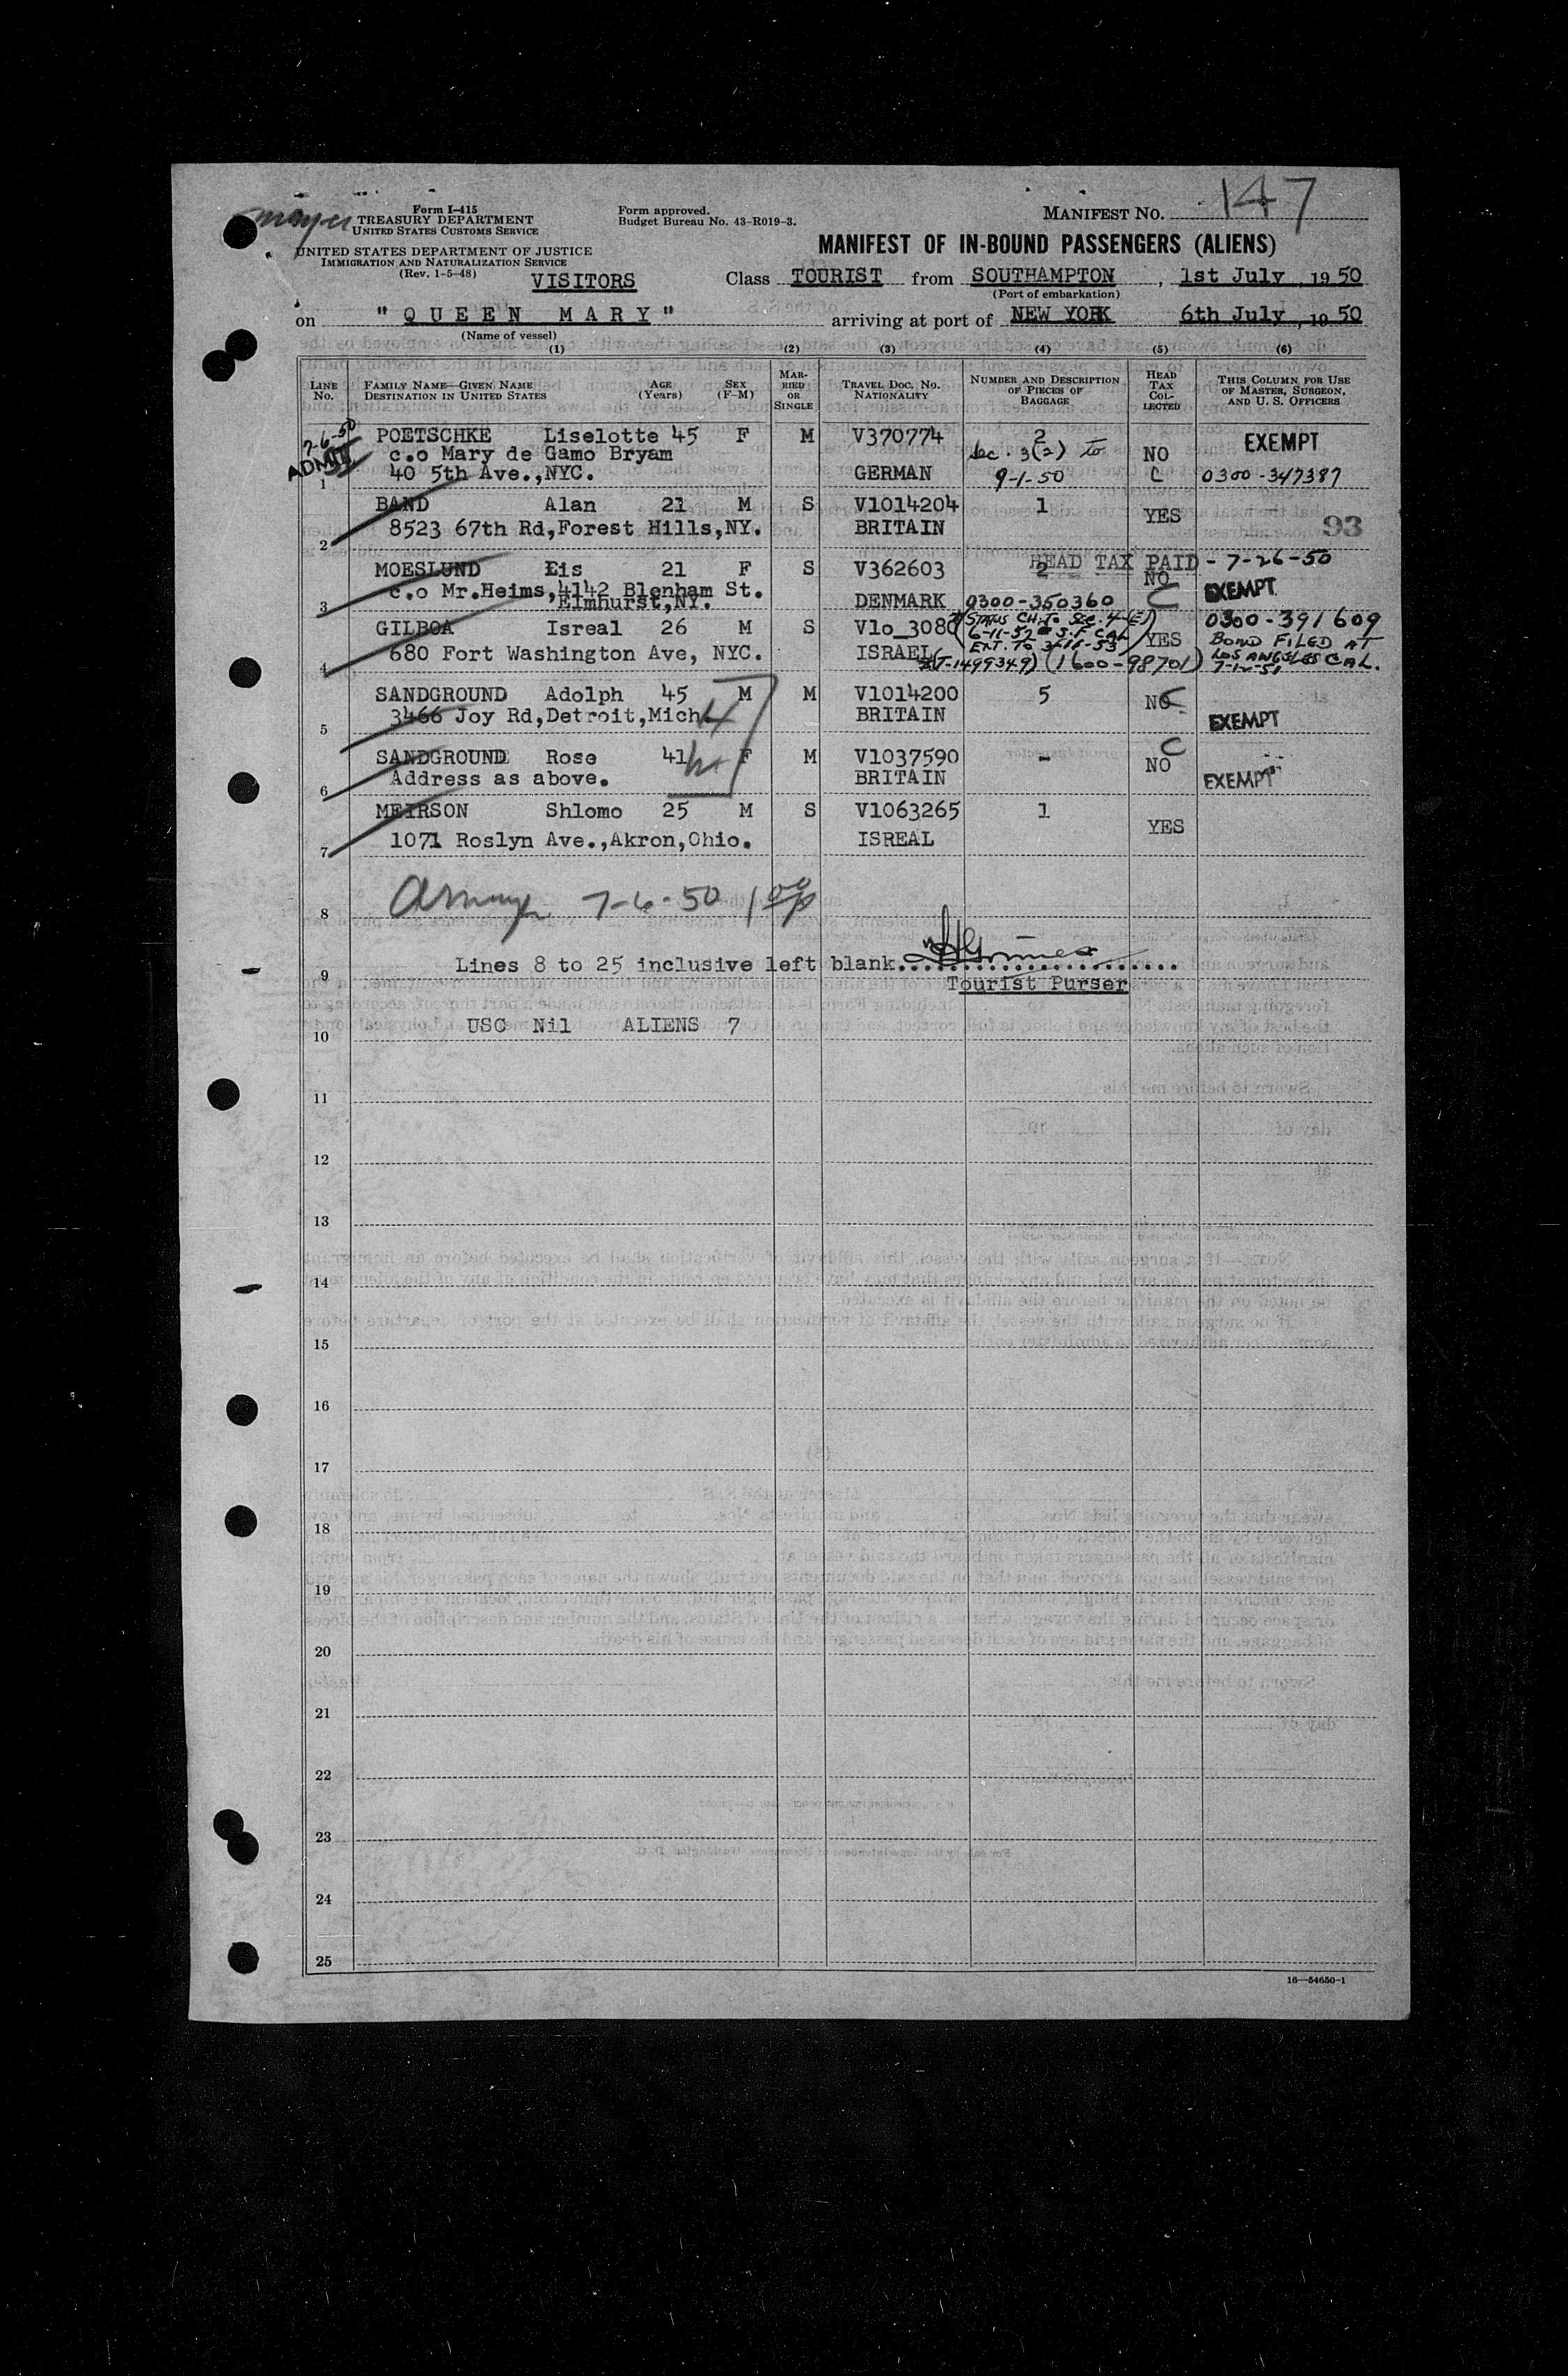 mayer
147
Form I-415
TREASURY DEPARTMENT
UNITED STATES CUSTOMS SERVICE
Form approved.
Budget Bureau No. 43-R019-3.
MANIFEST NO.
UNITED STATES DEPARTMENT OF JUSTICE
IMMIGRATION AND NATURALIZATION SERVICE
(Rev. 1-5-48)
MANIFEST OF IN-BOUND PASSENGERS (ALIENS)
VISITORS Class TOURIST from SOUTHAMPTON, 1st July, 1950
(Port of embarkation)
on "QUEEN MARY" arriving at port of NEW YORK 6th July, 1950
(Name of vessel)
(1) (2) (3) (4) (5) (6)
LINE NO. FAMILY NAME—GIVEN NAME DESTINATION IN UNITED STATES AGE (Years) SEX (F-M) MARRIED OR SINGLE TRAVEL DOC. NO. NATIONALITY NUMBER AND DESCRIPTION OF PIECES OF BAGGAGE HEAD TAX COLLECTED THIS COLUMN FOR USE OF MASTER, SURGEON, AND U. S. OFFICERS
7-6-50 POETSCHKE Liselotte 45 F M V370774 2 NO EXEMPT
ADMIT c.o Mary de Gamo Bryam Sec. 3(2) to
1 40 5th Ave.,NYC. GERMAN 9-1-50 C 0300-347387
BAND Alan 21 M S V1014204 1 YES
2 8523 67th Rd,Forest Hills,NY. BRITAIN 93
HEAD TAX PAID - 7-26-50
MOESLUND Eis 21 F S V362603 2 NO EXEMPT
c.o Mr.Heims,4142 Blenham St.
3 Elmhurst,NY. DENMARK 0300-350360 C
GILBOA Isreal 26 M S V1o_3080 STATUS CH. TO SEC. 4-(E) YES 0300-391609
6-11-52 S.F. CAL BOND FILED AT
4 680 Fort Washington Ave, NYC. ISRAEL EXT. TO 3-11-53 LOS ANGELES CAL.
(T-1499349) (1600-98701)
SANDGROUND Adolph 45 M M V1014200 5 NO C
5 3466 Joy Rd,Detroit,Mich. BRITAIN EXEMPT
SANDGROUND Rose 41 F M V1037590 - NO C
6 Address as above. BRITAIN EXEMPT
MEIRSON Shlomo 25 M S V1063265 1 YES
7 1071 Roslyn Ave.,Akron,Ohio. ISREAL
8 7-6-50
9 Lines 8 to 25 inclusive left blank.
Tourist Purser
10 USC Nil ALIENS 7
11
12
13
14
15
16
17
18
19
20
21
22
23
24
25
16—54650-1